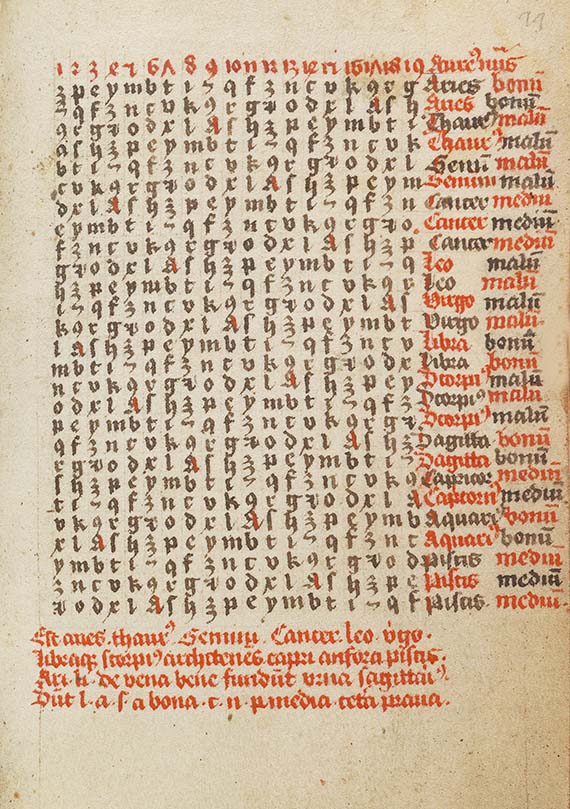 1 2 3 4 5 6 7 8 9 10 11 12 13 14 15 16 17 18 19 Aureꝰ nūs
ꝫ p e y m b t i ⁊ q f z n c v k 9 r g Aries bonū
⁊ q f z n c v k 9 r g ꝛ o d x l a s h Aries bonū
9 r g ꝛ o d x l A s h ꝫ p e y m b t i Thaurꝰ malū
a s h ꝫ p e y m b t i ⁊ q f z n c v k Thaurꝰ malū
b t i ⁊ q f z n c v k 9 r g ꝛ o d x l Gemī malū
c v k 9 r g ꝛ o d x l A s h ꝫ p e y m Gemini malū
d x l A s h ꝫ p e y m b t i ⁊ q f z n Cancer mediū
e y m b t i ⁊ q f z n c v k 9 r g ꝛ o Cancer mediū
f z n c v k 9 r g ꝛ o d x l A s h ꝫ p Cancer mediū
g ꝛ o d x l A s h ꝫ p e y m b t i ⁊ q Leo malū
h ꝫ p e y m b t i ⁊ q f z n c v k 9 r Leo malū
i ⁊ q f z n c v k 9 r g ꝛ o d x l A s Virgo malū
k 9 r g ꝛ o d x l A s h ꝫ p e y m b t Virgo malū
l A s h ꝫ p e y m b t i ⁊ q f z n c v Libra bonū
m b t i ⁊ q f z n c v k 9 r g ꝛ o d x Libra bonū
n c v k 9 r g ꝛ o d x l A s h ꝫ p e y Scorpiꝰ malū
o d x l A s h ꝫ p e y m b t i ⁊ q f z Scorpiꝰ malū
p e y m b t i ⁊ q f z n c v k 9 r g ꝛ Scorpiꝰ malū
q f z n c v k 9 r g ꝛ o d x l A s h ꝫ Sagitta bonū
r g ꝛ o d x l A s h ꝫ p e y m b t i ⁊ Sagitta bonū
s h ꝫ p e y m b t i ⁊ q f z n c v k 9 Capricor mediū
t i ⁊ q f z n c v k 9 r g ꝛ o d x l A Capicorn mediū
v k 9 r g ꝛ o d x l A s h ꝫ p e y m b Aquarꝰ bonū
x l A s h ꝫ p e y m b t i ⁊ q f z n c Aquariꝰ bonū
y m b t i ⁊ q f z n c v k 9 r g ꝛ o d Piscis mediū
z n c v k 9 r g ꝛ o d x l A s h ꝫ p e Piscis mediū
ꝛ o d x l A s h ꝫ p e y m b t i ⁊ q f Piscis mediū
Est aries. thaurꝰ. Gemini. Cancer. leo. v̓go.
libraqꝫ scorpiꝰ architenēs capri anfora piscis.
Ari. li. de vena bene fundūt vrna sagittaiꝰ
Dūt l. a. s. a bona. c. n. p. media. cetā praua.